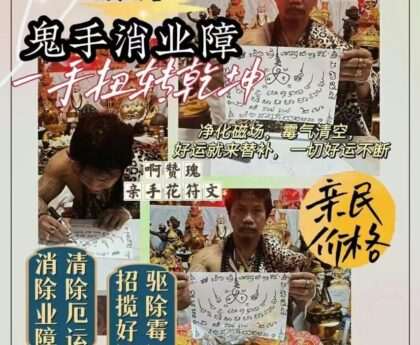 鬼手消业障
一手扭转乾坤
净化磁场，霉气清空，
好运就来替补，一切好运不断
啊赞瑰
亲手花符文
亲民
价格
清除厄运
消除业障
驱除霉
招揽好